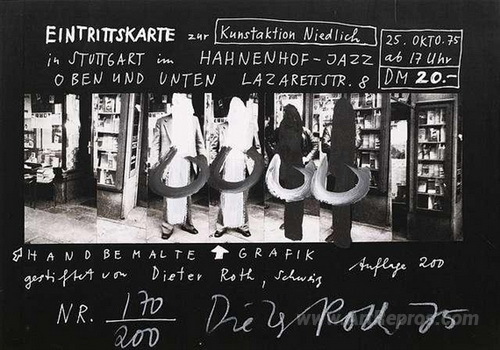 EINTRITTSKARTE zur Kunstaktion Niedlich
in STUTTGART im HAHNENHOF-JAZZ
OBEN UND UNTEN LAZARETTSTR. 8
25. OKTO. 75
ab 17 Uhr
DM 20.-
HANDBEMALTE GRAFIK
gestiftet von Dieter Roth, Schweiz
Auflage 200
NR. 170/200
Dieter Roth 75
www.Artnepros.com